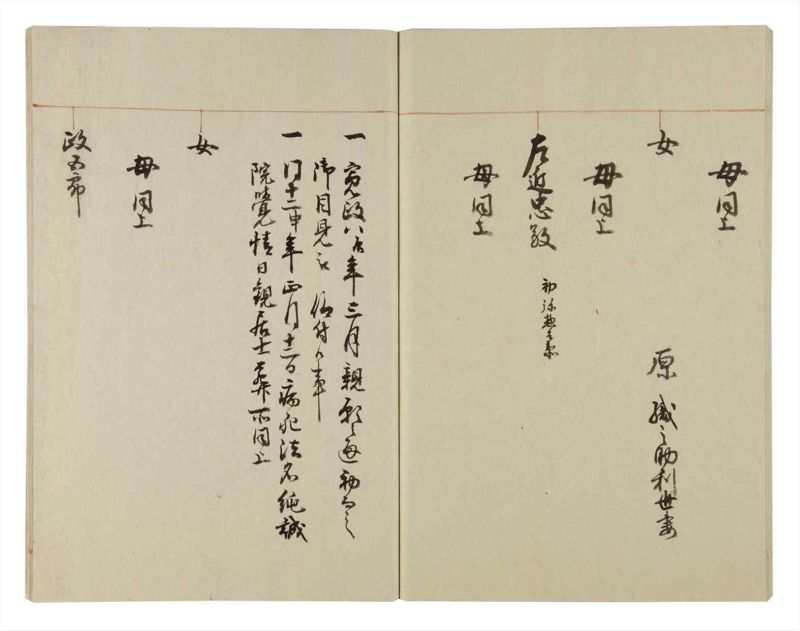 母同上
女
原 織之助利世妻
母同上
左近忠敬
母同上
一 寛政八辰年三月親願之通初而之
御目見被 仰付候事
一 同十二申年正月十二日病死法名純誠
院覚情日観居士葬所同上
女
母同上
政五郎